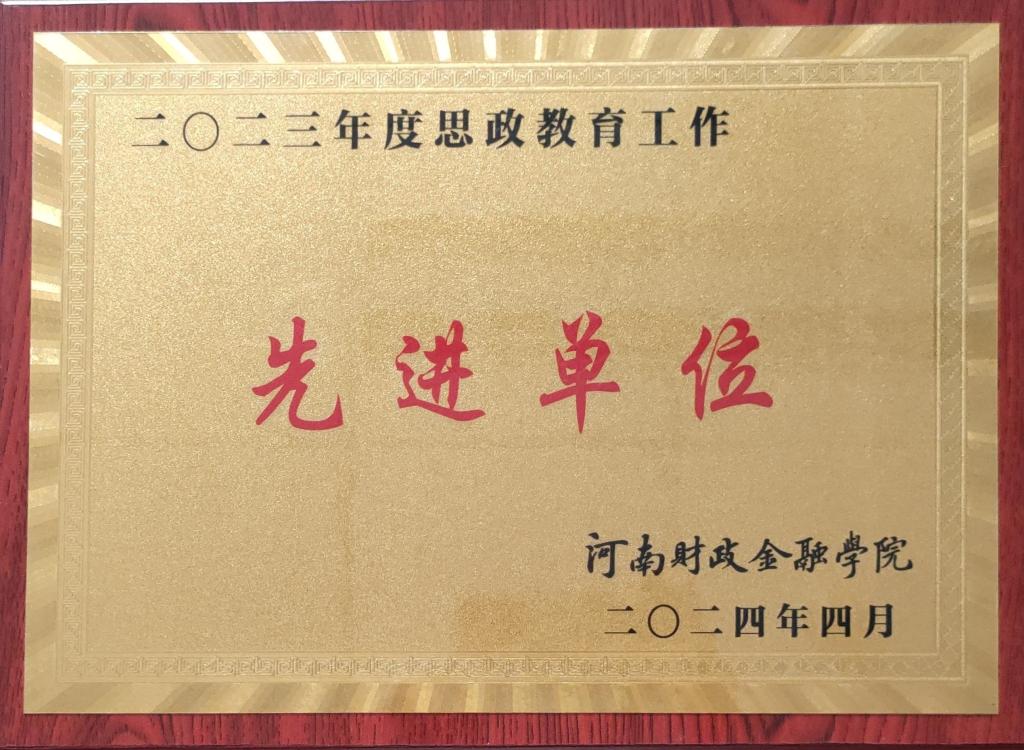 二〇二三年度思政教育工作
先进单位
河南财政金融學院
二〇二四年四月